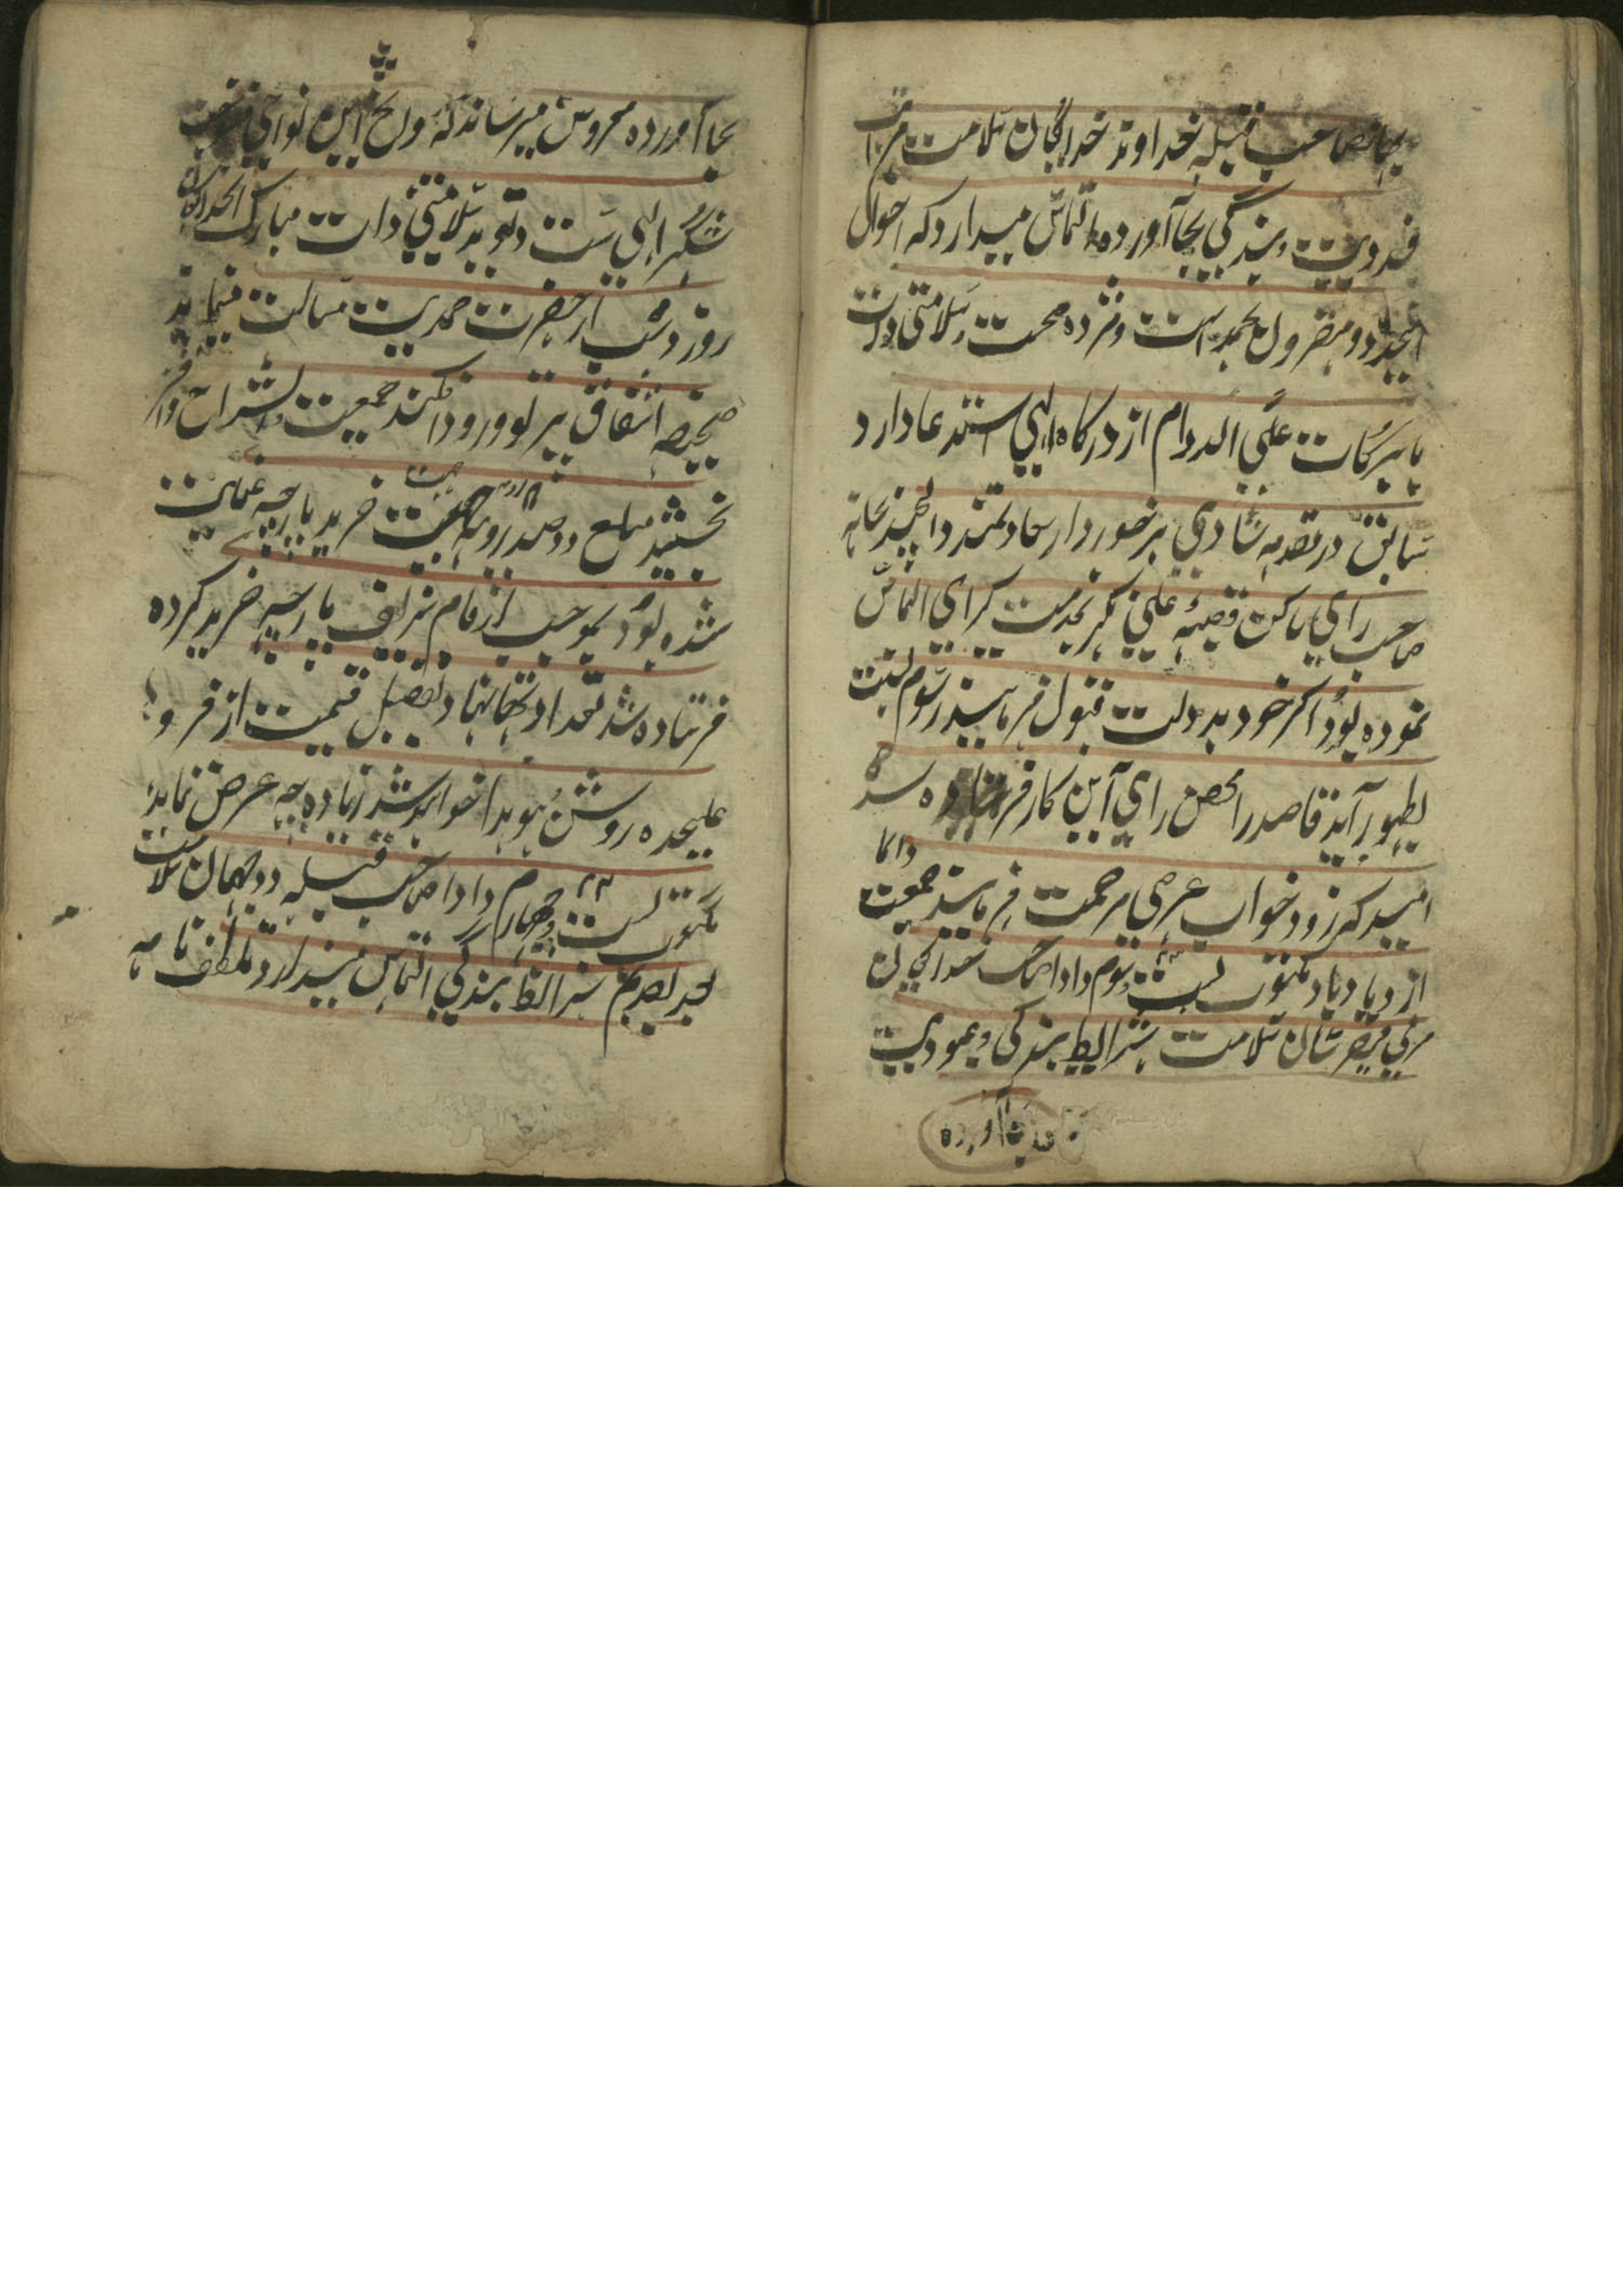 صاحب قبله خداوند خدایگان سلامت مراتب
فدویت و بندگی بجا آورده التماس میدارد که احوال
بحمد است و مژده صحت و سلامتی ذات
با برکات علی الدوام از درکاه الهی استدعا دارد
سابق در مقدمه شادی برخوردار سعادتمند بخانه
صاحب رای ساکن قصبه بخدمت کرای التماس
نموده بود اکر خود بدولت قبول فرمایند رسوم نسبت
بظهور آید قاصد را محض برای این کار فرستاده شده
امید که زود جواب عرضی مرحمت فرمایند جمعیت دایما
از دیاد باد مکتوب بست و سوم دادا صاحب خدایگان
فیض رسان سلامت شرایط بندکی و عبودیت
بجا آورده
بجا آورده معروض میرساند که این نواحی
شکر الهی است و نوید سلامتی ذات مبارک
روز و شب از حضرت صمدیت مسالت مینماید
صحیفه اشفاق پرتو ورود افکند جمعیت و انشراح وافر
بخشید مبلغ دو صد روپیه جهت خرید پارچه عنایت
شده بود بموجب ارقام شریف پارچه خرید کرده
فرستاده شد تعداد تهانها و تفصیل قیمت از فرد
علیحده روشن و هویدا خواهد شد زیاده چه عرض نماید
مکتوب بست و چهارم ۲۴ دادا صاحب قبله دو جهان سلامت
بعد تقدیم شرایط بندکی التماس میدارد ملاطفه نامه